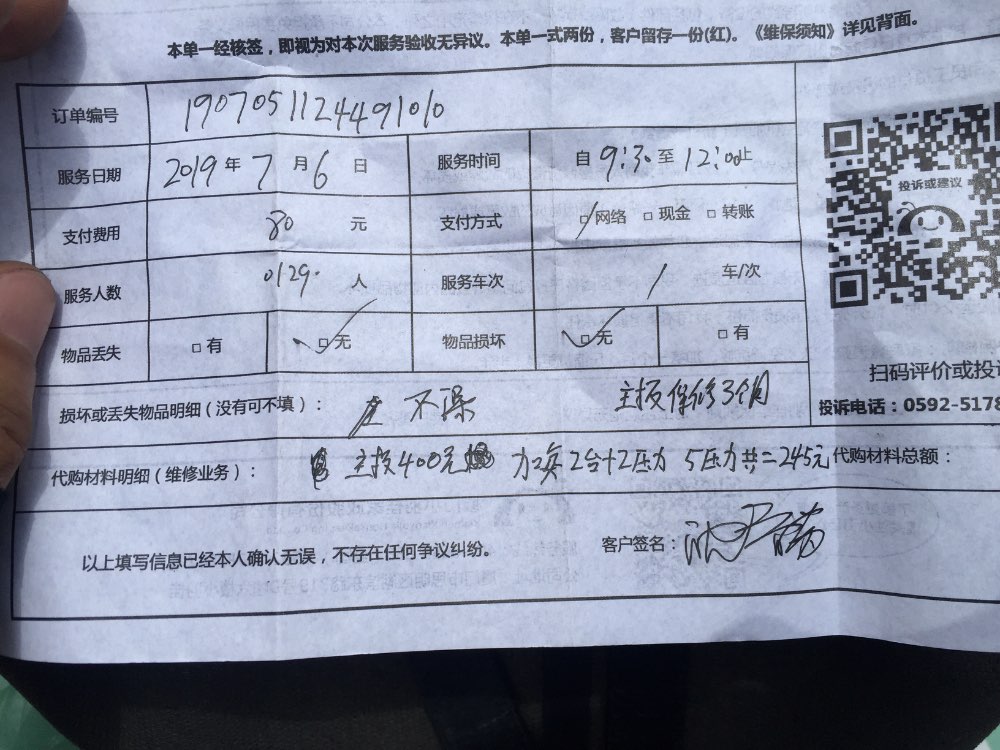 本单一经核签，即视为对本次服务验收无异议。本单一式两份，客户留存一份(红)。《维保须知》详见背面。
订单编号 1907051124491010
服务日期 2019 年 7 月 6 日 服务时间 自 9:30 至 12:00 止
投诉或建议
支付费用 80 元 支付方式 □网络 □现金 □转账
服务人数 0129. 人 服务车次 / 车/次
物品丢失 □有 □无 物品损坏 □无 □有
扫码评价或投
损坏或丢失物品明细（没有可不填）： 不保 主板保修3个月
投诉电话：0592-5178
代购材料明细（维修业务）： 主板400元 2台+2压力 5压力共=245元 代购材料总额：
以上填写信息已经本人确认无误，不存在任何争议纠纷。 客户签名：